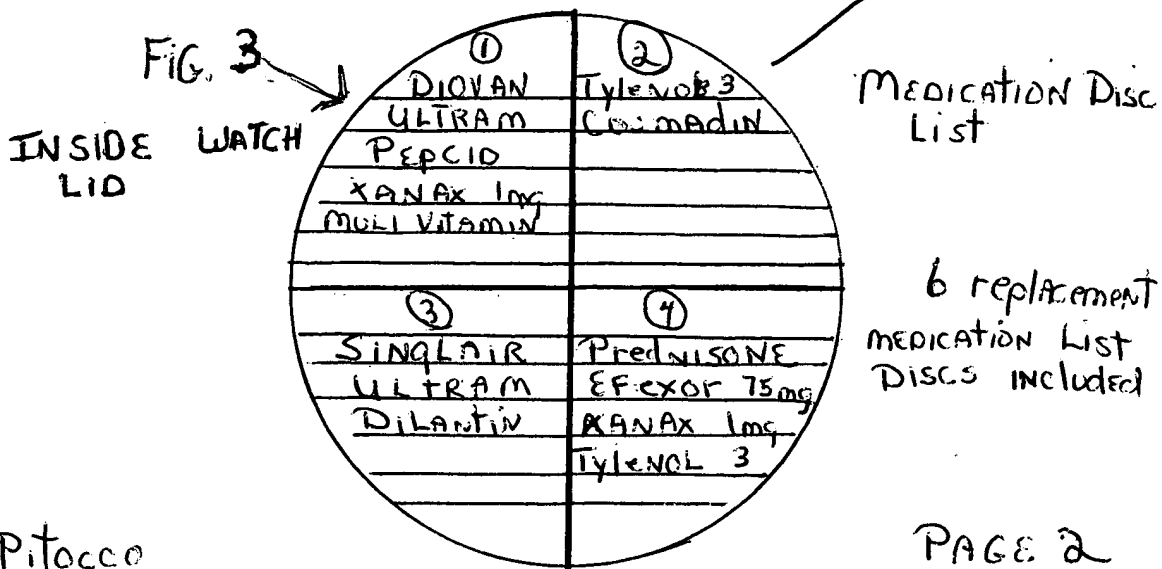 FIG. 3
INSIDE WATCH
LID
①
DIOVAN
ULTRAM
PEPCID
XANAX 1mg
MULI VITAMIN
②
Tylenol 3
COUMADIN
③
SINGLAIR
ULTRAM
DILANTIN
④
PrEdNISONE
EFFexor 75mg
XANAX 1mg
TylENOL 3
MEDICATION Disc
List
6 replacement
MEDICATION List
DISCS INCluded
Pitocco
PAGE 2